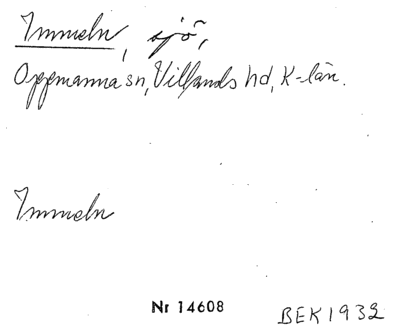 Immeln, sjö,
Oppmanna sn, Villands hd, K-län.
Immeln
Nr 14608 BEK 1932